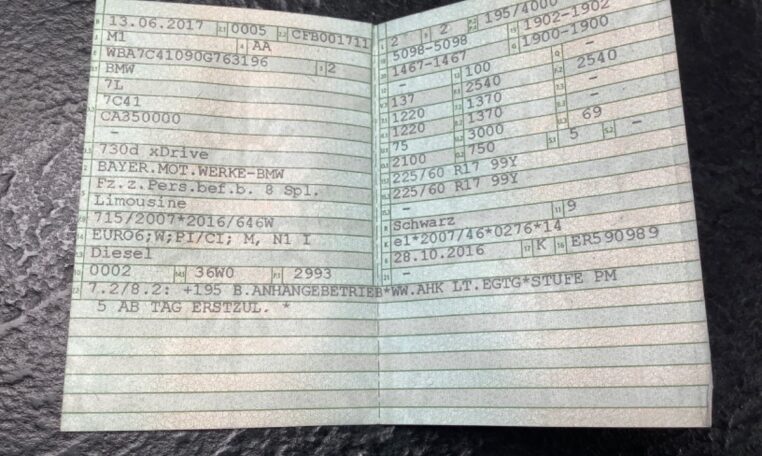 13.06.2017 0005 CFB001711
M1 AA
WBA7C41090G763196 2
BMW
7L
7C41
CA350000
-
730d xDrive
BAYER.MOT.WERKE-BMW
Fz.z.Pers.bef.b. 8 Spl.
Limousine
715/2007*2016/646W
EURO6;W;PI/CI; M, N1 I
Diesel
0002 36W0 2993
7.2/8.2: +195 B.ANHANGEBETRIEB*WW.AHK LT.EGTG*STUFE PM
5 AB TAG ERSTZUL. *
2 2 195/4000
5098-5098 1902-1902
1467-1467 1900-1900
- 100 -
137 2540 2540
1220 1370 -
1220 1370 -
75 3000 69
2100 750 5 -
225/60 R17 99Y
225/60 R17 99Y
-
Schwarz 9
e1*2007/46*0276*14
28.10.2016 K ER590989
-